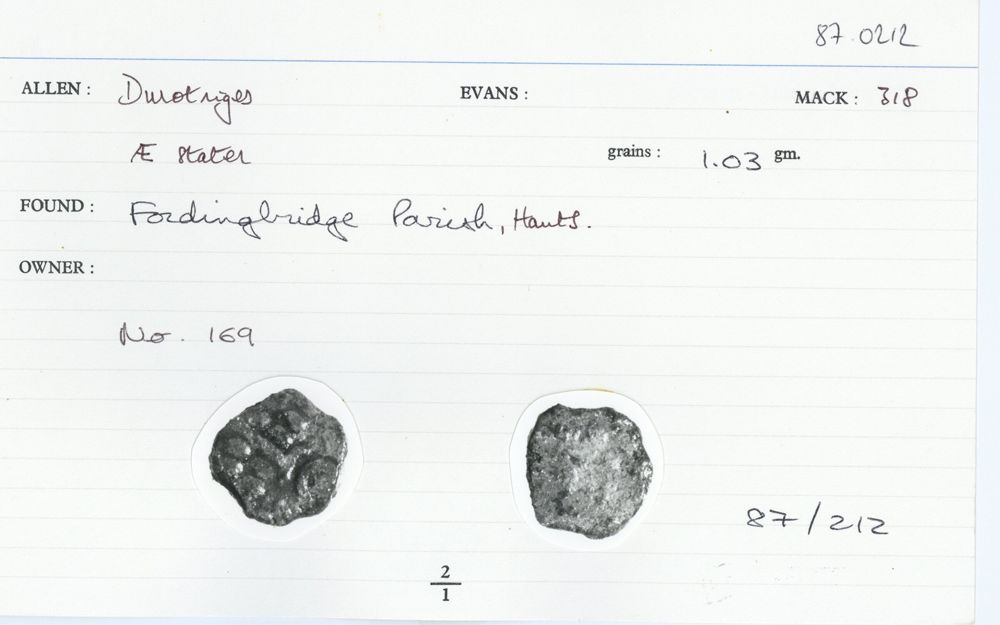 87.0212
ALLEN : Durotriges EVANS : MACK : 318
Æ Stater grains : 1.03 gm.
FOUND : Fordingbridge Parish, Hants.
OWNER :
No. 169
87/212
2
1